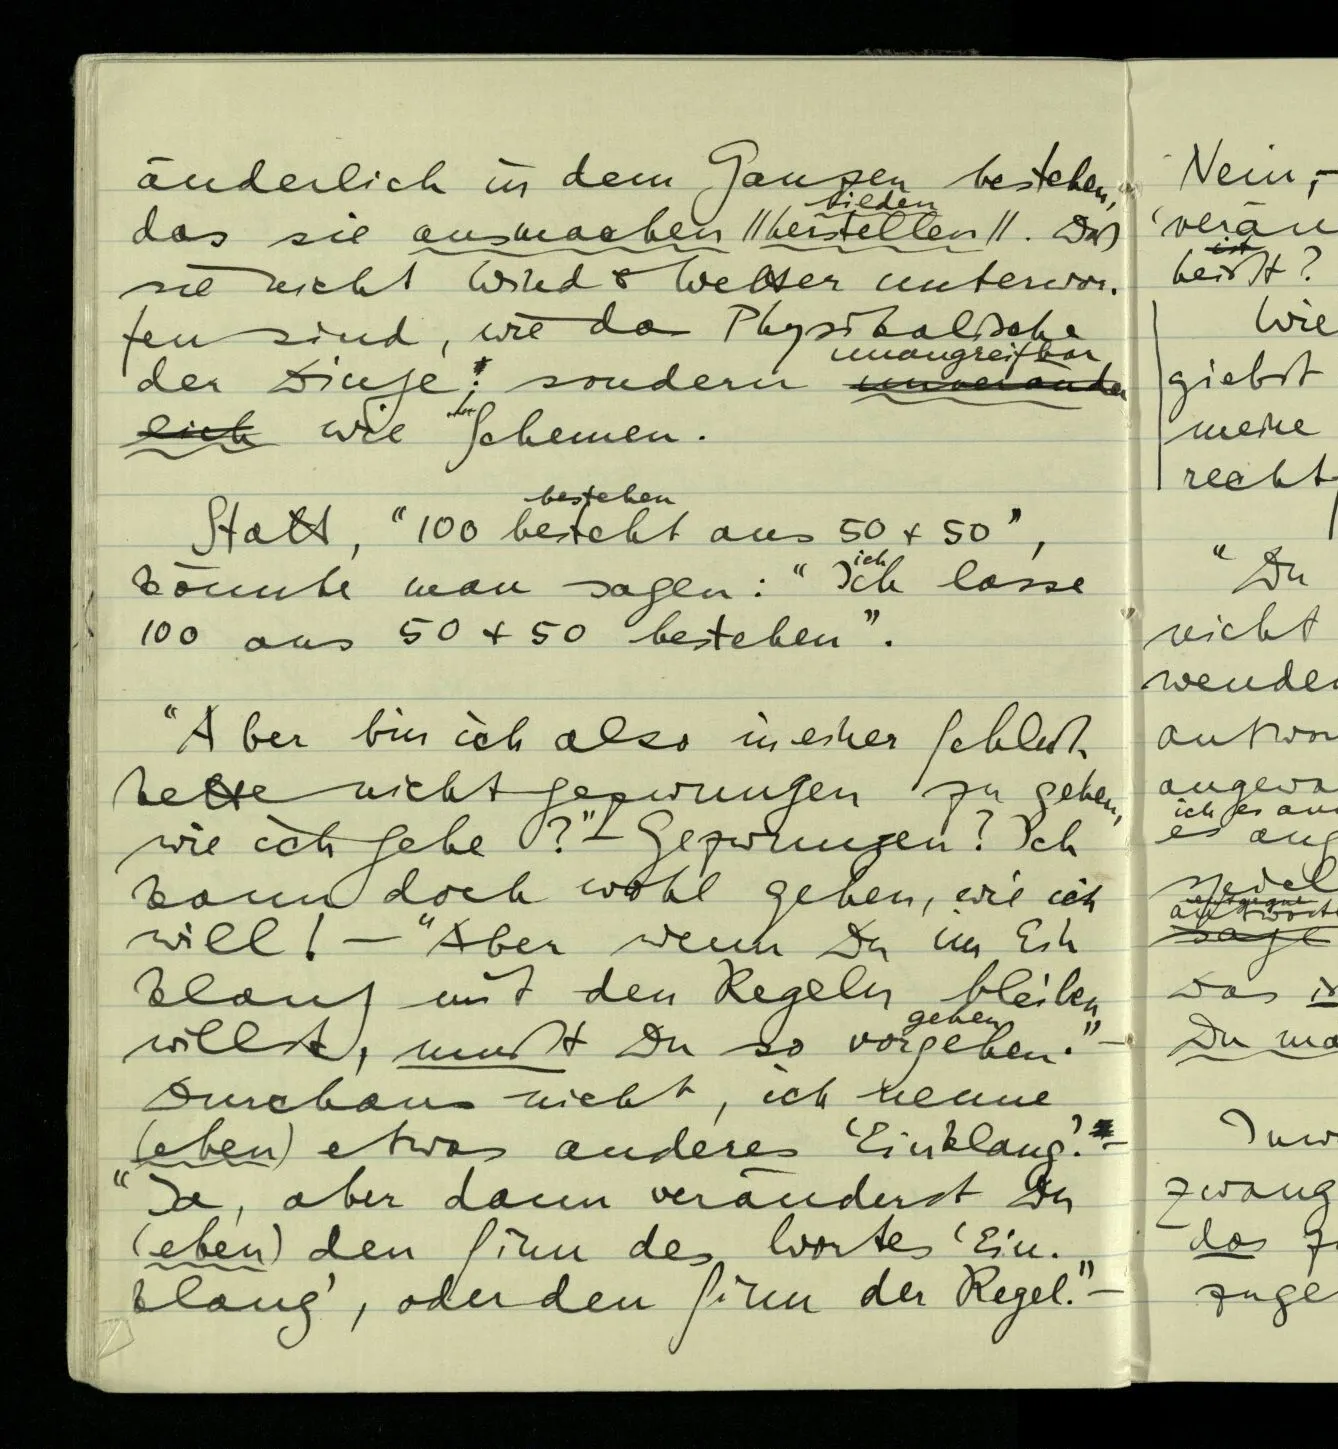 änderlich in dem Ganzen bestehen,
bilden
das sie ausmachen //herstellen//. Daß
sie nicht Wind & Wetter unterwor-
fen sind, wie das Physikalische
unangreifbar,
der Dinge; sondern unveränder
lich wie Schemen.
bestehen
Statt, “100 besteht aus 50 + 50”,
ich
könnte man sagen: “Ich lasse
100 aus 50 + 50 bestehen”.
“Aber bin ich also in einer Schluß
kette nicht gezwungen zu gehen,
wie ich gehe?” – Gezwungen? Ich
kann doch wohl gehen, wie ich
will! – “Aber wenn Du im Ein
klang mit den Regeln bleiben
gehen
willst, mußt Du so vorgehen.” –
Durchaus nicht, ich nenne
(eben) etwas anderes ‘Einklang’. –
“Ja, aber dann veränderst Du
(eben) den Sinn des Wortes ‘Ein-
klang’, oder den Sinn der Regel.” –
Nein, –
‘verän
ist
heißt?
Wie
giebst
meine
recht
“Du
nicht
wenden
antwor
angewa
ich es an
es ang
entgegne
antworte
sage
Das is
Du ma
Inw
zwang
das
zuge